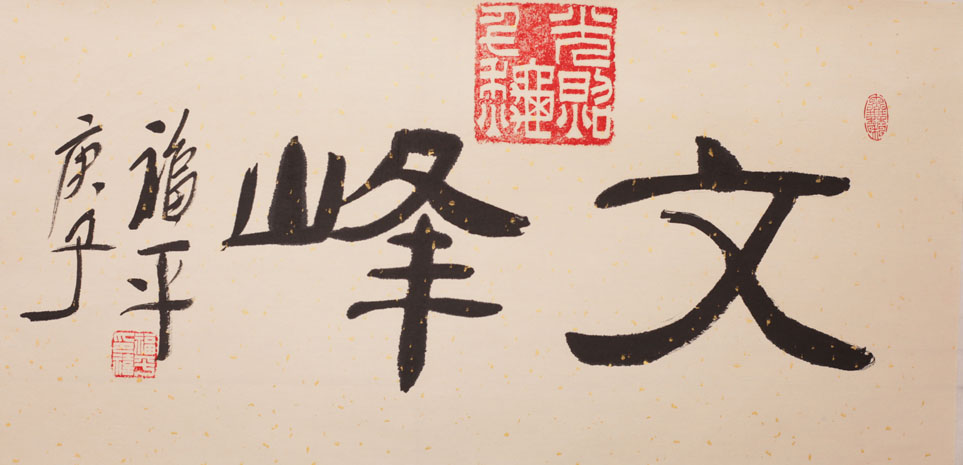 文峰
福平
庚子